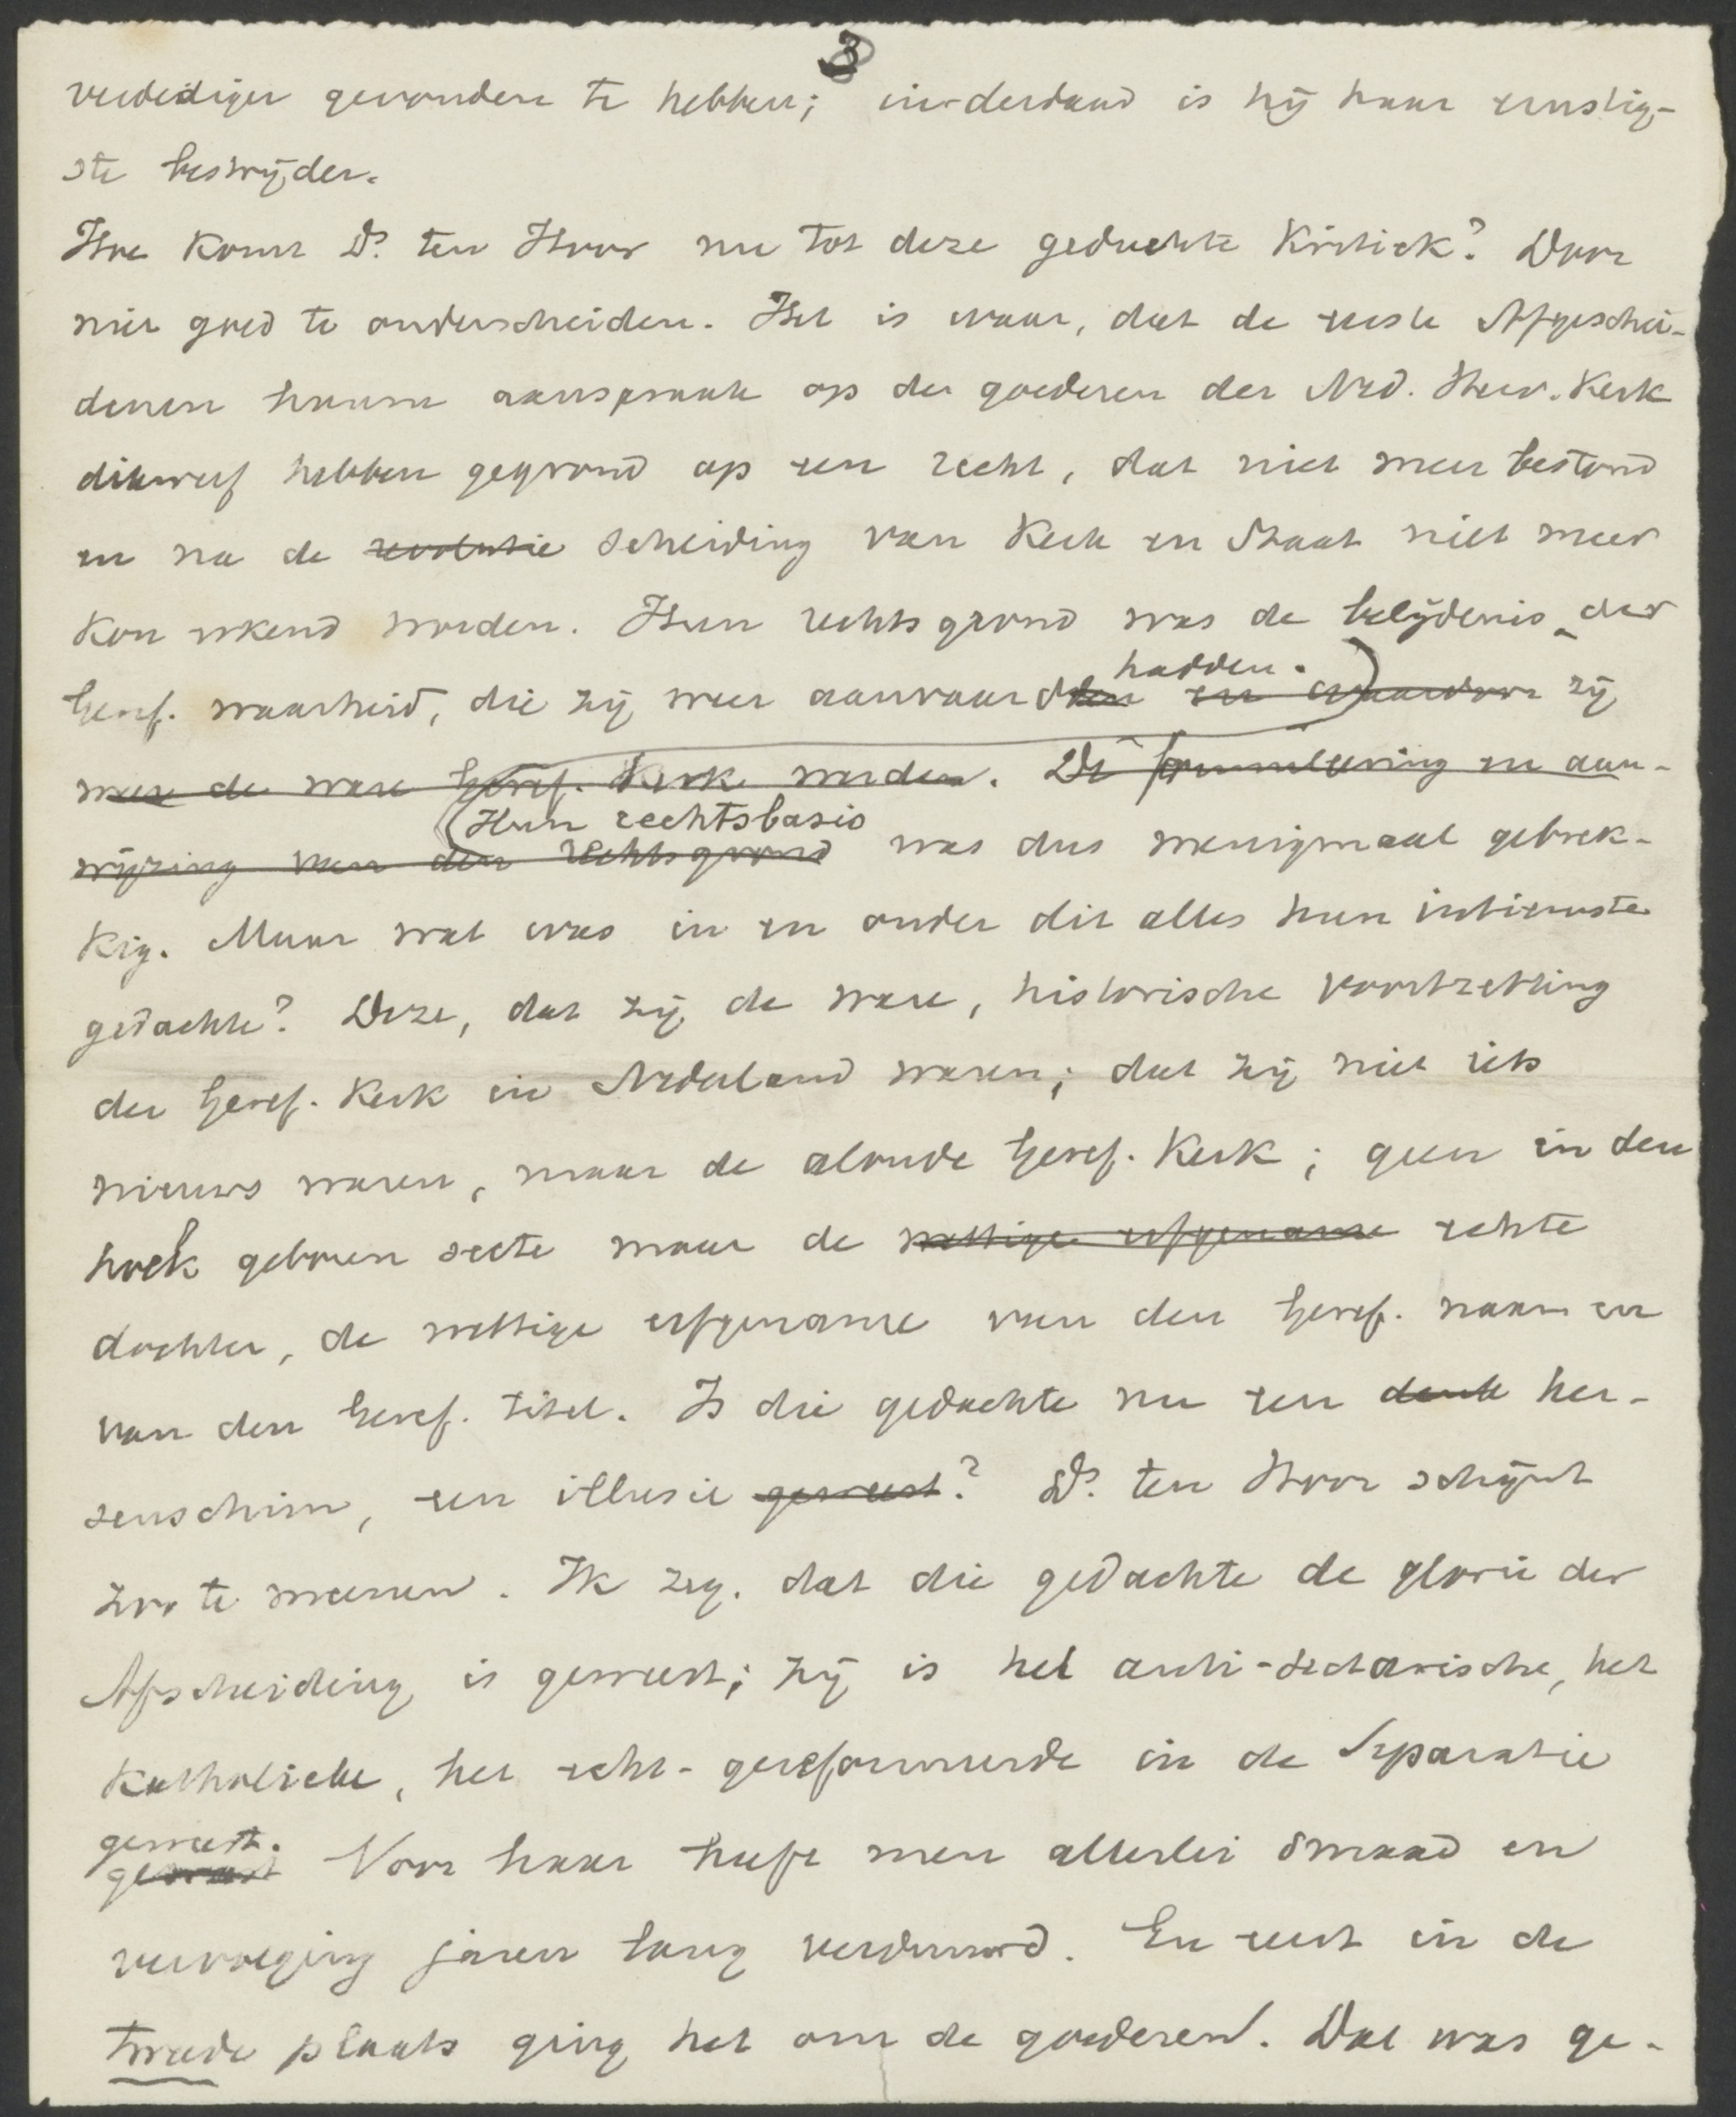 3
verdediger gevonden te hebben; inderdaad is hij haar ernstig-
ste bestrijder.
Hoe komt Ds. ten Hoor nu tot deze geduchte kritiek? Door
niet goed te onderscheiden. Het is waar, dat de eerste Afgeschei-
denen hunne aanspraak op de goederen der Ned. Herv. Kerk
dikwerf hebben gegrond op een recht, dat niet meer bestond
en na de revolutie scheiding van Kerk en Staat niet meer
kon erkend worden. Hun rechtsgrond was de belijdenis der
hadden.
Geref. waarheid, die zij weer aanvaardden en waardoor zij
weer de ware Geref. Kerk werden. De formuleering en aan-
(Hun rechtsbasis
wijzing van den rechtsgrond was dus menigmaal gebrek-
kig. Maar wat was in en onder dit alles hun intiemste
gedachte? Deze, dat zij de ware, historische voortzetting
der Geref. Kerk in Nederland waren; dat zij niet iets
nieuws waren, maar de aloude Geref. Kerk; geen in den
hoek geboren secte maar de wettige erfgename echte
dochter, de wettige erfgename van den Geref. naam en
van den Geref. titel. Is die gedachte nu een denk her-
senschim, een illusie geweest? Ds. ten Hoor schijnt
zoo te meenen. Ik zeg, dat die gedachte de glorie der
Afscheiding is geweest; zij is het anti-sectarische, het
Katholieke, het echt-gereformeerde in de Separatie
geweest.
geweest Voor haar heeft men allerlei smaad en
vervolging jaren lang verduurd. En eerst in de
tweede plaats ging het om de goederen. Dat was ge-